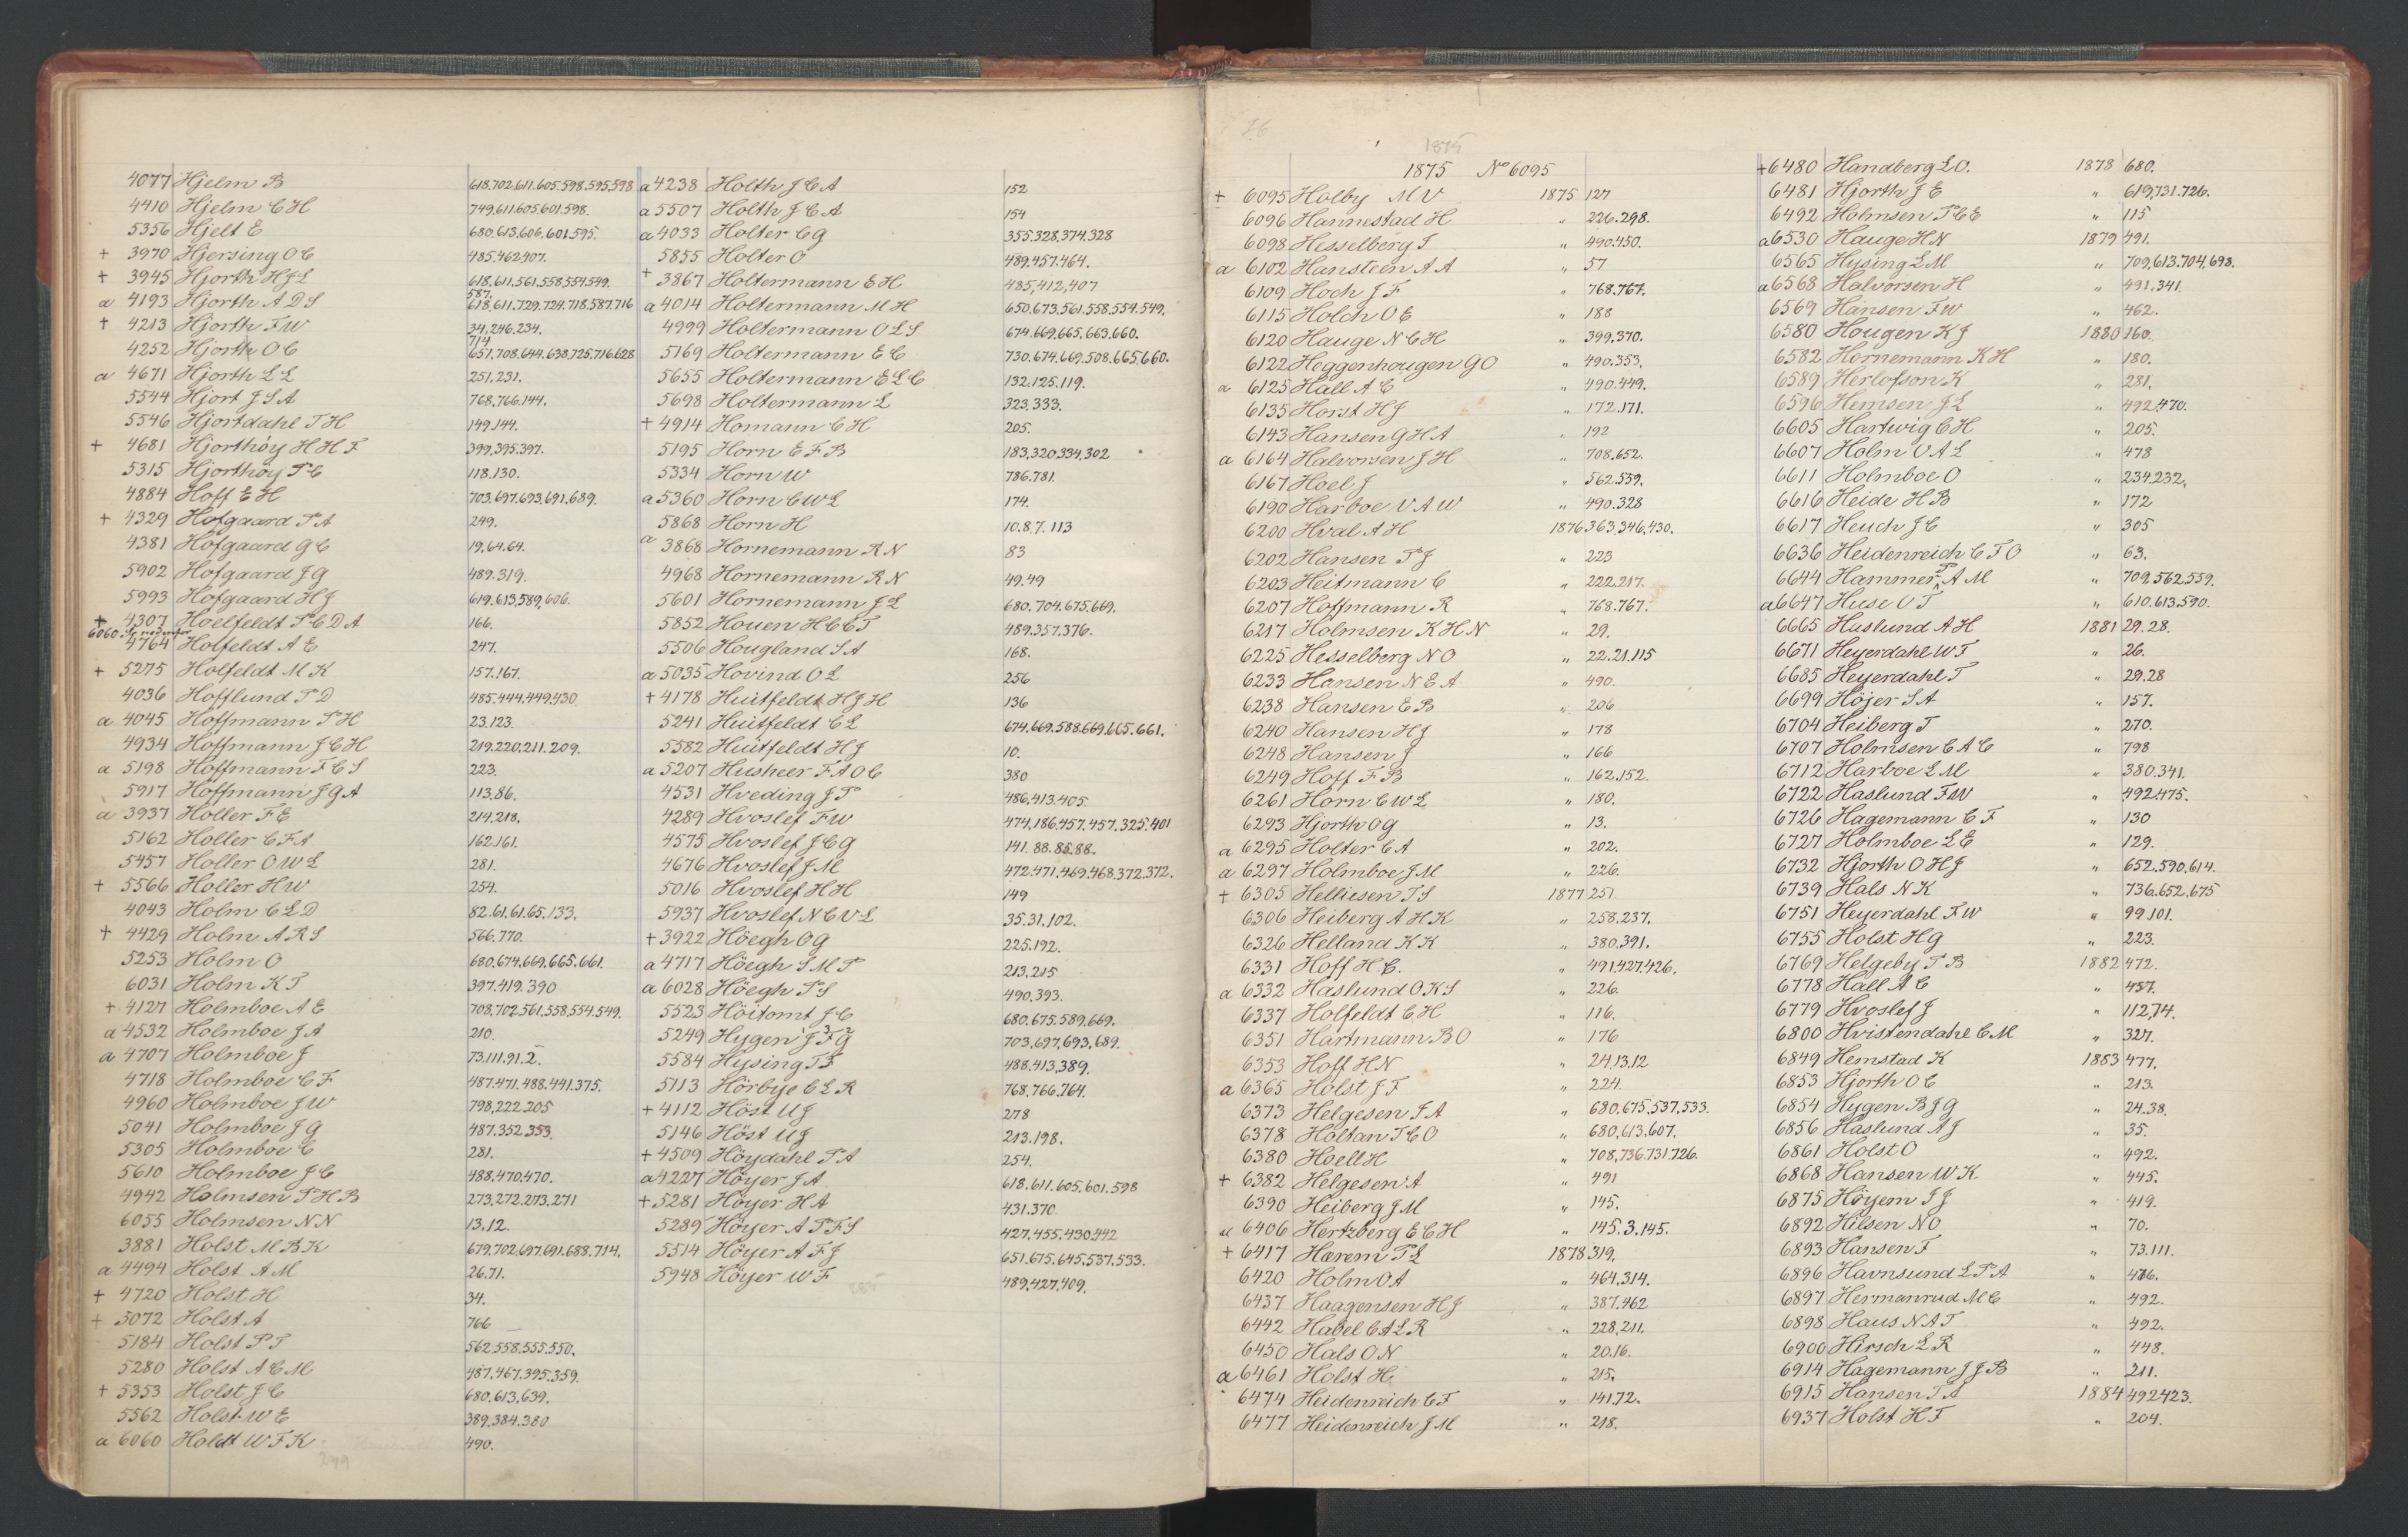 4077 Hjelm B 618.702.611.605.598.595.598
4410 Hjelm C H 749.611.605.601.598.
5356 Hjelt E 680.613.606.601.595.
+ 3970 Hjersing O C 485.462.407.
+ 3945 Hjorth H J L 618.611.561.558.554.549.
587.
a 4193 Hjorth A D S 618.611.729.724.718.587.716
+ 4213 Hjorth F W 34.246.234.
714
4252 Hjorth O C 651.708.644.638.725.716.628
a 4671 Hjorth L L 251.231.
5544 Hjort J S A 768.766.144.
5546 Hjortdahl T H 149.144.
+ 4681 Hjorthöy H H F 399.395.397.
5315 Hjorthöy P C 118.130.
4884 Hoff E H 703.697.693.691.689.
+ 4329 Hofgaard P A 249.
4381 Hofgaard G C 19.64.64.
5902 Hofgaard J G 489.319.
5993 Hofgaard H J 619.613.589.606.
+ 4307 Hoelfeldt P C D A 166.
6060 nedenfor
4764 Holfeldt A E 247.
+ 5275 Holfeldt M K 157.167.
4036 Hofflund P D 485.444.449.430
a 4045 Hoffmann P H 23.123.
4934 Hoffmann J C H 219.220.211.209.
a 5198 Hoffmann F C S 223.
5917 Hoffmann J G A 113.86.
a 3937 Holler F E 214.218.
5162 Holler C F A 162.161.
5457 Holler O W L 281.
+ 5566 Holler H W 254.
4043 Holm C L D 82.61.61.65.133.
+ 4429 Holm A R S 566.770.
5253 Holm O 680.674.669.665.661.
6031 Holm K T 397.419.390
+ 4127 Holmboe A E 708.702.561.558.554.549.
a 4532 Holmboe J A 210.
a 4707 Holmboe J 73.111.91.2.
4718 Holmboe C F 487.471.488.441.375.
4960 Holmboe J W 798.222.205
5041 Holmboe J G 487.352.353.
5305 Holmboe C 281.
5610 Holmboe J C 488.470.470.
4942 Holmsen P H B 273.272.273.271
6055 Holmsen N N 13.12.
3881 Holst M B K 679.702.697.691.688.714.
a 4494 Holst A M 26.71.
+ 4720 Holst H 34.
+ 5072 Holst A 766
5184 Holst P T 562.558.555.550.
5280 Holst A C M 487.467.395.359.
+ 5353 Holst J C 680.613.639.
5562 Holst W E 389.384.380
a 6060 Holdt W F K 490.
299
a 4238 Holth J C A 152
a 5507 Holth J C A 154
a 4033 Holter C G 355.328.374.328
5855 Holter O 489.457.464.
+ 3867 Holtermann E H 485.412.407
a 4014 Holtermann M H 650.673.561.558.554.549.
4999 Holtermann O L S 674.669.665.663.660.
5169 Holtermann E C 730.674.669.508.665.660.
5655 Holtermann E L C 132.125.119.
5698 Holtermann L 323.333.
+ 4914 Homann C H 205.
5195 Horn E F B 183.320.334.302
5334 Horn W 786.781.
a 5360 Horn C W L 174.
5868 Horn H 10.8.7.113
a 3868 Hornemann R N 83
4968 Hornemann R N 49.49
5601 Hornemann J L 680.704.675.669.
5852 Houen H C C T 489.357.376.
5506 Hougland S A 168.
a 5035 Hovind O L 256
+ 4178 Huitfeldt H J H 136
5241 Huitfeldt C L 674.669.588.669.665.661.
5582 Huitfeldt H J 10.
a 5207 Husheer F A O C 380
4531 Hveding J P 486.413.405.
4289 Hvoslef F W 474.186.457.457.325.401
4575 Hvoslef J C G 141.88.85.88.
4676 Hvoslef J M 472.471.469.468.372.372.
5016 Hvoslef H H 149
5937 Hvoslef N C V L 35.31.102.
+ 3922 Höegh O G 225.192.
a 4717 Höegh S M P 213.215
a 6028 Höegh P S 490.393.
5523 Höitomt J C 680.675.589.669.
5249 Hygen J F G 703.697.693.689.
5584 Hysing T F 488.413.389.
5113 Hörbye C L R 768.766.764.
+ 4112 Höst U J 278
5146 Höst U J 213.198.
+ 4509 Höydahl P A 254.
a 4227 Höyer J A 618.611.605.601.598
+ 5281 Höyer H A 431.370.
5289 Höyer A P F S 427.455.430.442
5514 Höyer A F J 651.675.645.537.533.
5948 Höyer W F 489.427.409.
76
1875
1875 No 6095
+ 6095 Holby M V 1875 127
6096 Hannestad H „ 226.298.
6098 Hesselberg T „ 490.450.
a 6102 Hansteen A A „ 57
6109 Hoch J F „ 768.767.
6115 Holch O E „ 188
6120 Hauge N C H „ 399.370.
6122 Heggenhougen G O „ 490.353.
a 6125 Hall A C „ 490.449.
6135 Horst H J „ 172.171.
6143 Hansen G H A „ 192
a 6164 Halvorsen J H „ 708.652.
6167 Hoel J „ 562.559.
6190 Harboe V A W „ 490.328
6200 Hval A H 1876 363.346.430.
6202 Hansen P J „ 223
6203 Heitmann C „ 222.217.
6207 Hoffmann R „ 768.767.
6217 Holmsen K H N „ 29.
6225 Hesselberg N O „ 22.21.115
6233 Hansen N E A „ 490.
6238 Hansen E B „ 206
6240 Hansen H J „ 178
6248 Hansen J „ 166
6249 Hoff F B „ 162.152.
6261 Horn C W L „ 180.
6293 Hjorth O G „ 13.
a 6295 Holter C A „ 202.
a 6297 Holmboe J M „ 226.
+ 6305 Helliesen T S 1877 251
6306 Heiberg A H K „ 258.237.
6326 Helland K K „ 380.391.
6331 Hoff H C. „ 491.427.426.
a 6332 Haslund O K S „ 226.
6337 Holfeldt C H „ 116.
6351 Hartmann B O „ 176
6353 Hoff H N „ 24.13.12
a 6365 Holst J T „ 224.
6373 Helgesen F A „ 680.675.537.533.
6378 Holtan T C O „ 680.613.607.
6380 Hoell H „ 708.736.731.726.
+ 6382 Helgesen A „ 491
6390 Heiberg J M „ 145.
a 6406 Hertzberg E C H „ 145.3.145.
+ 6417 Hærem P L 1878 319.
6420 Holm O A „ 464.314.
6437 Haagensen H J „ 387.462
6442 Habel C A L R „ 228.211.
6450 Hals O N „ 20.16.
a 6461 Holst H „ 215.
6474 Heidenreich C F „ 141.72.
6477 Heidenreich J M „ 218.
+ 6480 Handberg L O. 1878 680.
6481 Hjorth J E „ 619.731.726.
6492 Holmsen P C E „ 115
a 6530 Hauge H N 1879 491.
6565 Hysing L M „ 709.613.704.698.
a 6568 Halvorsen H „ 491.341.
6569 Hansen F W „ 462.
6580 Hougen K J 1880 160.
6582 Hornemann K H „ 180.
6589 Herlofson K „ 281.
6596 Hemsen J L „ 492.470.
6605 Hartwig C H „ 205.
6607 Holm O A L „ 478
6611 Holmboe O „ 234.232.
6616 Heide H B „ 172
6617 Heuch J C „ 305
6636 Heidenreich C F O „ 63.
6644 Hammer P A M „ 709.562.559.
a 6647 Huse O T „ 610.613.590.
6665 Huslund A H 1881 29.28.
6671 Heyerdahl W F „ 26.
6685 Heyerdahl T „ 29.28
6699 Höjer S A „ 157.
6704 Heiberg T „ 270.
6707 Holmsen C A C „ 798
6712 Harboe L M „ 380.341.
6722 Haslund F W „ 492.475.
6726 Hagemann C F „ 130
6727 Holmboe L E „ 129.
6732 Hjorth O H J „ 652.590.614.
6739 Hals N K „ 736.652.675
6751 Heyerdahl F W „ 99.101.
6755 Holst H G „ 223.
6769 Helgeby P B 1882 472.
6778 Hall A C „ 457.
6779 Hvoslef J „ 112.74.
6800 Hvistendahl C M „ 327.
6849 Hemstad K 1883 477.
6853 Hjorth O C „ 213.
6854 Hygen B J G „ 24.38.
6856 Haslund A J „ 35.
6861 Holst O „ 492.
6868 Hansen W K „ 445.
6875 Höyem I J „ 419.
6892 Hilsen N O „ 70.
6893 Hansen F „ 73.111.
6896 Havnsund L P A „ 416.
6897 Hermanrud M C „ 492.
6898 Haus N A T „ 492.
6900 Hirsch L R „ 448.
6914 Hagemann J J B „ 211.
6915 Hansen T A 1884 492.423.
6937 Holst H F „ 204.